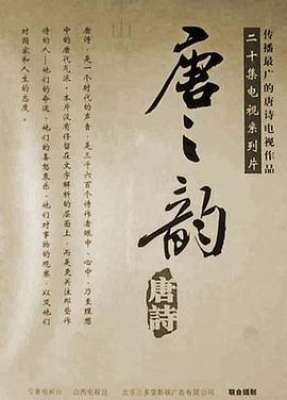 传播最广的唐诗电视作品
二十集电视系列片
唐之韵
唐詩
唐诗，是一个时代的声音，是三千六百个诗作者眼中、心中，乃至理想
中的唐代气派。本片没有停留在文字解析的层面上，而是更关注那些作
诗的人——他们的命运、他们的喜怒哀乐、他们对事物的观察，以及他们
对国家和人生的态度。
山西电视台
北京三多堂影视广告有限公司
联合摄制